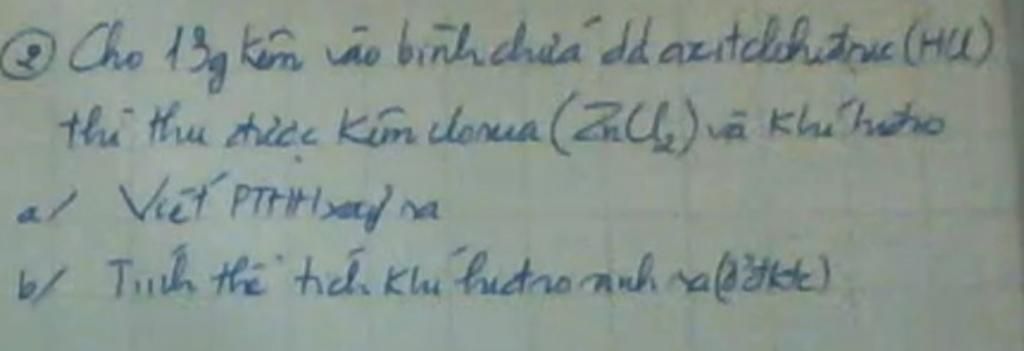 ② Cho 13g kẽm vào bình chứa dd axit clohiđric (HCl)
thì thu được kẽm clorua (ZnCl₂) và khí hiđro
a/ Viết PTHH xảy ra
b/ Tính thể tích khí hiđro sinh ra (ở đktc)